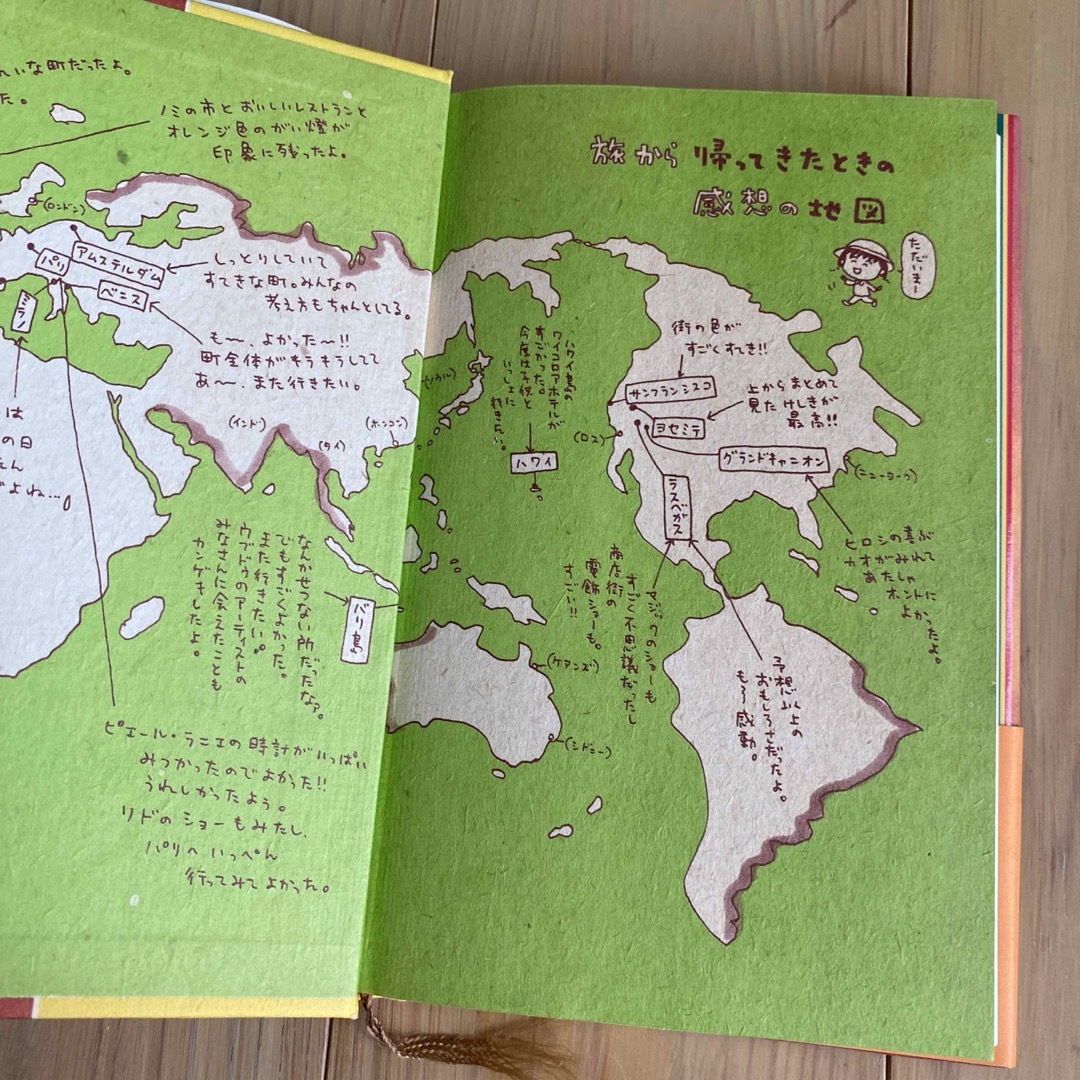 旅から帰ってきたときの
感想の地図
ただいまー
れいな町だったよ。
た。
ノミの市とおいしいレストランと
オレンジ色のがい燈が
印象に残ったよ。
(ロンドン)
アムステルダム
パリ
ベニス
ミラノ
しっとりしていて
すてきな町。みんなの
考え方もちゃんとしてる。
も〜、よかった〜!!
町全体がキラキラしてて
あ〜、また行きたい。
は
の日
たん
よね…。
(インド)
(タイ)
(ホンコン)
(ソウル)
なんかせつない所だったな?。
でもすごくよかった。
また行きたい。
ウブドゥのアーティストの
みなさんに会えたことも
カンゲキしたよ。
バリ島
ピエール・ラニエの時計がいっぱい
みつかったのでよかった!!
うれしかったよう。
リドのショーもみたし、
パリへいっぺん
行ってみてよかった。
ハワイ島の
ワイコロアホテルが
すごかった。
今度は子供と
いっしょに
行きたい。
ハワイ
街の色が
すごくすてき!!
サンフランシスコ
上からまとめて
見たけしきが
最高!!
ヨセミテ
(ロス)
グランドキャニオン
ラスベガス
(ニューヨーク)
ヒロシの喜ぶ
カオがみれて
あたしゃ
ホントに
よかったよ。
マジックのショーも
すごく不思議だったし
商店街の
電飾ショーも
すごい!!
予想以上の
おもしろさだったよ。
もう感動。
(ケアンズ)
(シドニー)